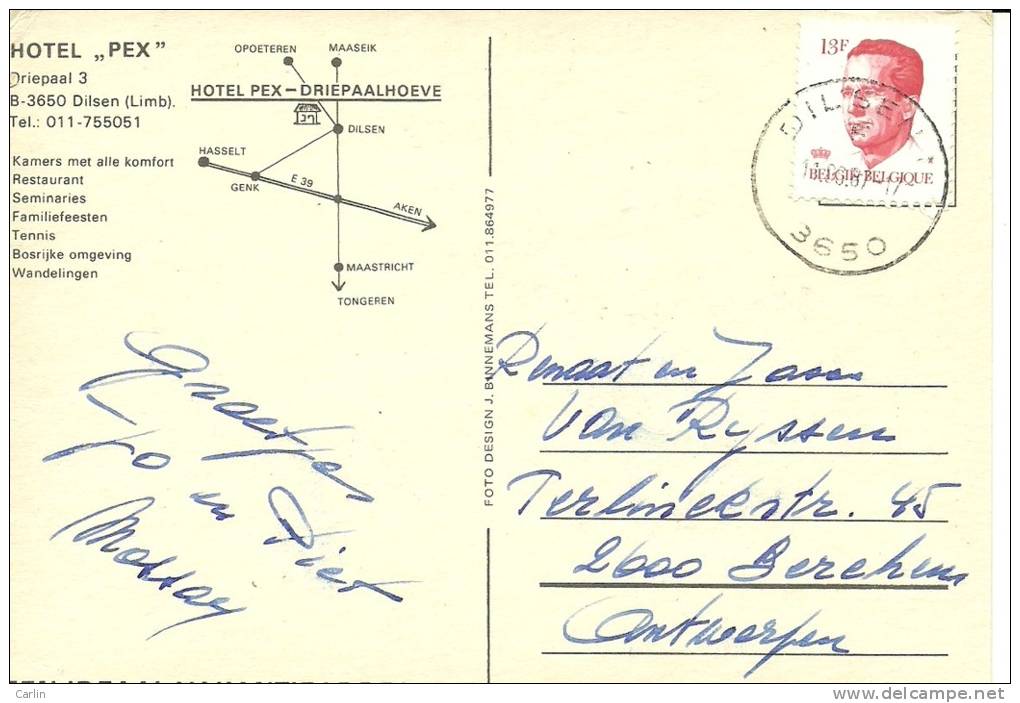 HOTEL „PEX”
Driepaal 3
B-3650 Dilsen (Limb).
Tel.: 011-755051
Kamers met alle komfort
Restaurant
Seminaries
Familiefeesten
Tennis
Bosrijke omgeving
Wandelingen
OPOETEREN
MAASEIK
HOTEL PEX–DRIEPAALHOEVE
DILSEN
HASSELT
GENK
E 39
AKEN
MAASTRICHT
TONGEREN
Groetjes
Jo en Piet
FOTO DESIGN J. BINNEMANS TEL. 011.864977
13F
BELGIE-BELGIQUE
DILSEN
3650
Renaat en
Van Ryssen
Terlinckstr. 45
2600 Berchem
Antwerpen
Carlin
www.delcampe.net